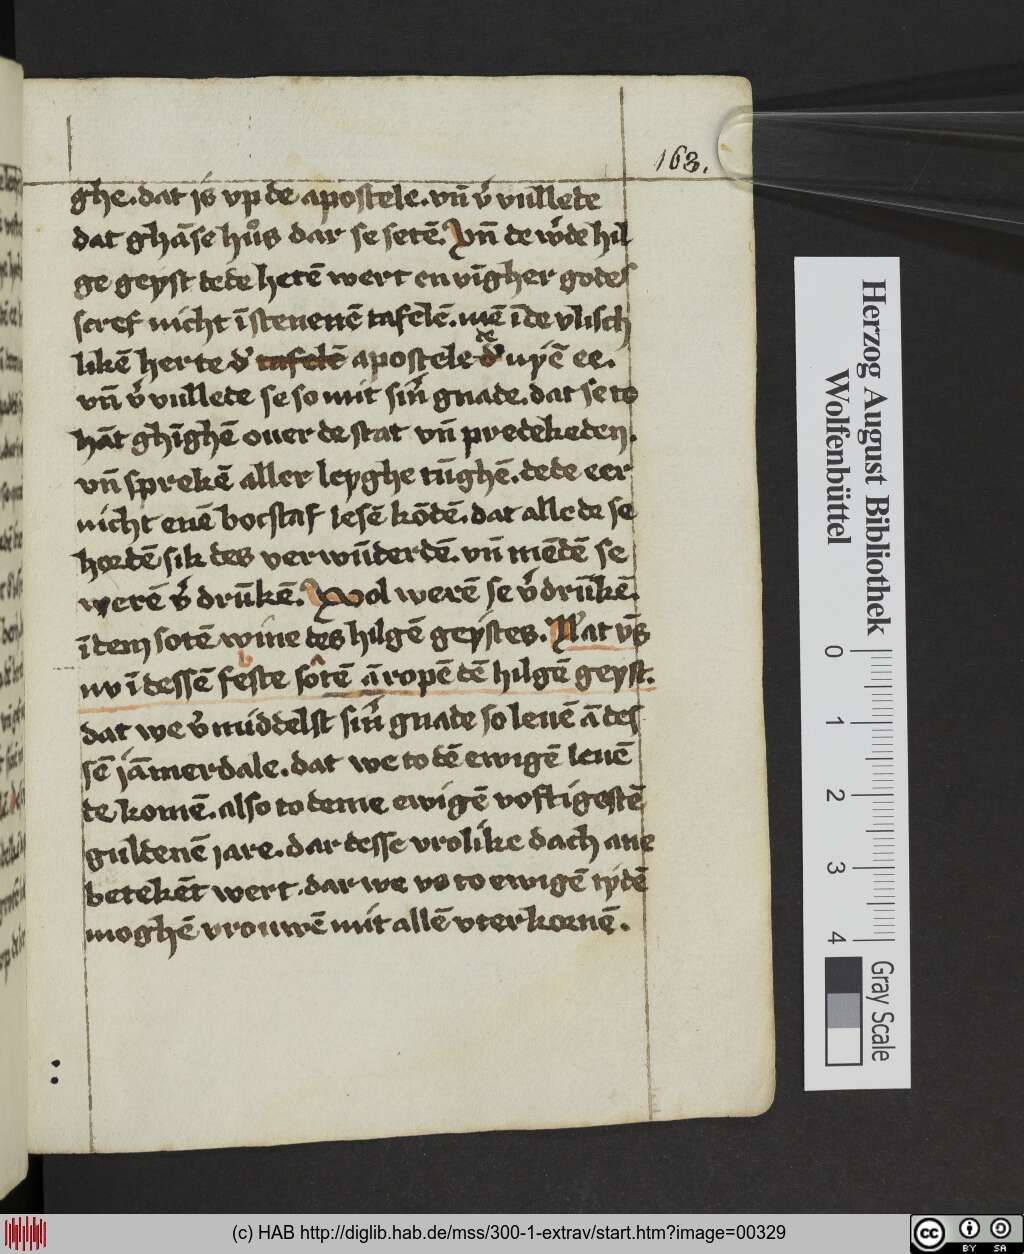 163.
ghe. dat is vp de apostele. vn̄ v̓ vullede
dat ghāse hůs dar se setē. Vn̄ de w̓de hil
ge geyst dede hetē wert en vīgher godes
scref nicht ī stenenē tafelē. mē ī de vlisch
likē herte d̓ tafelē apostele de d̓ nyē ee.
vn̄ v̓ vullede se so mit sin̓ gnade. dat se to
hāt ghīghē ouer de stat vn̄ predekeden.
vn̄ sprekē aller leyghe tūghē. dede eer
nicht enē bocstaf lesē kōdē. dat alle de se
hordē sik des verwūderdē. vn̄ mēdē se
werē v̓ drūkē. Wol werē se v̓ drūkē.
ī dem sotē wine des hilgē geystes. Lat vs̄
nv ī dessē feste sôtē ā ropē dē hilgē geyst.
dat we v̓ middelst sin̓ gnade so leuē ā des
sē iāmerdale. dat we to dē ewigē leuē
de komē. also to deme ewigē voftigestē
guldenē iare. dar desse vrolike dach ane
betekēt wert. dar we vs to ewigē tydē
moghē vrouwē mit allē vterkornē.
Herzog August Bibliothek
Wolfenbüttel
0 1 2 3 4
Gray Scale
(c) HAB http://diglib.hab.de/mss/300-1-extrav/start.htm?image=00329
cc BY SA